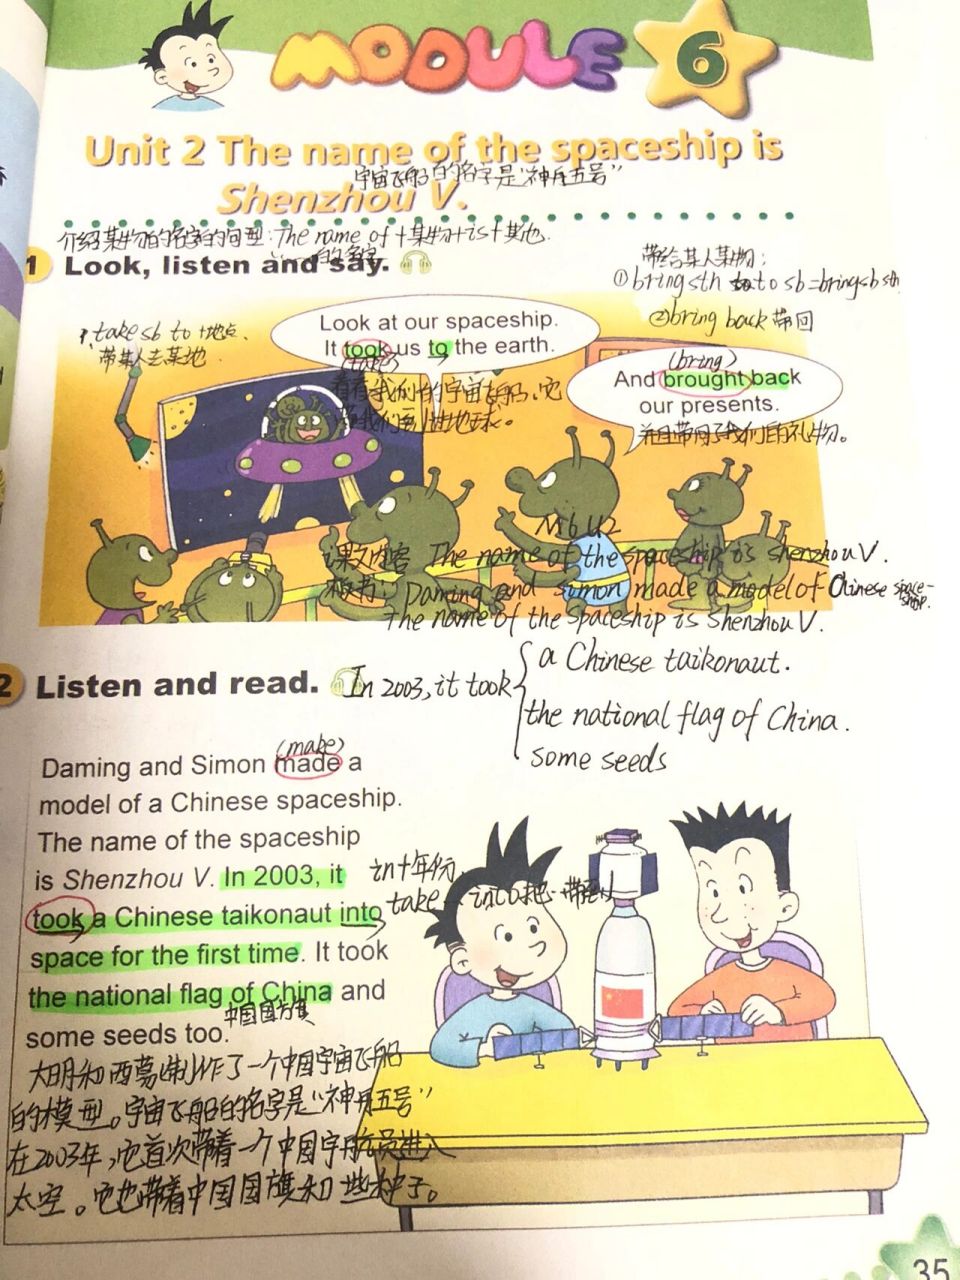 MODULE 6
Unit 2 The name of the spaceship is
宇宙飞船的名字是“神舟五号”
Shenzhou V.
介绍某物的名字的句型:The name of+某物+is+其他.
……的名字
1 Look, listen and say.
带给某人某物:
①bring sth to sb=bring sb sth
②bring back 带回
1. take sb to +地点.
带某人去某地.
Look at our spaceship.
It took us to the earth.
(take)
看看我们的宇宙飞船。它
带我们到过地球。
(bring)
And brought back
our presents.
并且带回了我们的礼物。
M6 U2
课文内容 The name of the spaceship is shenzhou V.
板书: Daming and simon made a model of Chinese space-
ship.
The name of the spaceship is Shenzhou V.
2 Listen and read.
In 2003, it took
a Chinese taikonaut.
the national flag of China.
some seeds
(make)
Daming and Simon made a
model of a Chinese spaceship.
The name of the spaceship
is Shenzhou V. In 2003, it
in+年份,
took a Chinese taikonaut into
take … into 把…带到
space for the first time. It took
the national flag of China and
中国国旗
some seeds too.
大明和西蒙制作了一个中国宇宙飞船
的模型。宇宙飞船的名字是“神舟五号”
在2003年,它首次带着一个中国宇航员进入
太空。它也带着中国国旗和一些种子。
35